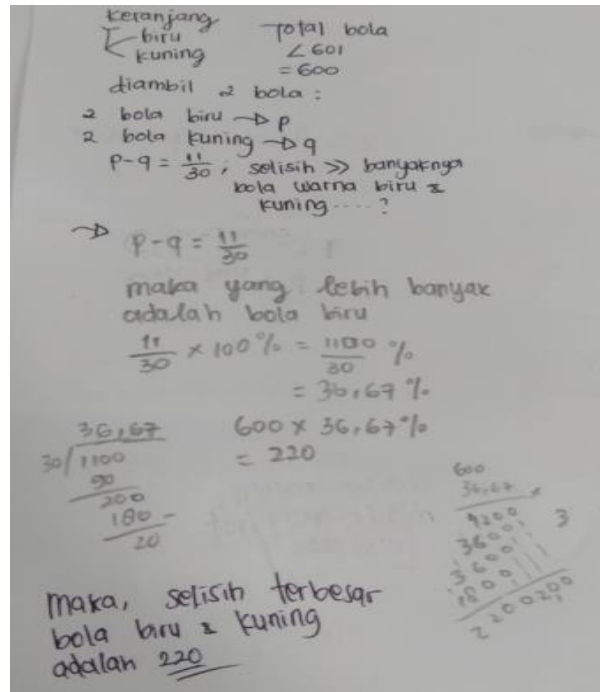 keranjang
biru
kuning
Total bola
< 601
= 600
diambil 2 bola :
2 bola biru → p
2 bola kuning → q
p-q = 11/30 ; selisih >> banyaknya
bola warna biru &
kuning .... ?
→ p-q = 11/30
maka yang lebih banyak
adalah bola biru
11/30 × 100 % = 1100/30 %
= 36,67 %
600 × 36,67 %
= 220
36,67
30/1100
90
200
180 -
20
600
36,67 ×
4200
3600
3600
1800
2200200
3
maka, selisih terbesar
bola biru & kuning
adalah 220